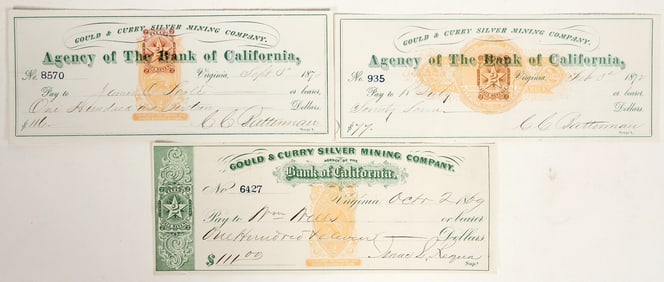 GOULD & CURRY SILVER MINING COMPANY.
Agency of The Bank of California,
No. 8570 Virginia, Sept 5th 187
Pay to or bearer,
One Hundred and Sixteen Dollars
$116. C C Batterman
Sup't.
GOULD & CURRY SILVER MINING COMPANY.
Agency of The Bank of California,
No. 935 Virginia, 187
Pay to or bearer,
Seventy Seven Dollars.
$77. C C Batterman
Sup't.
GOULD & CURRY SILVER MINING COMPANY.
AGENCY OF THE
Bank of California.
No. 6427 Virginia Octr 2 1869
Pay to Wm Wills or bearer
One Hundred & eleven Dollars
$111.00 Isaac L. Requa
Sup't.